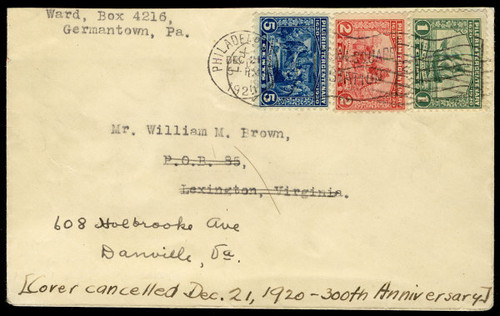 Ward, Box 4216,
Germantown, Pa.
PHILADELP
DEC 21
1920
PILGRIM TERCENTENARY
1620 1920
5 5
PILGRIM TERCENTENARY
2 2
1 1
Mr. William M. Brown,
P.O.B. 85,
Lexington, Virginia.
608 Holbrooke Ave
Danville, Va.
[Cover cancelled Dec. 21, 1920 - 300th Anniversary]